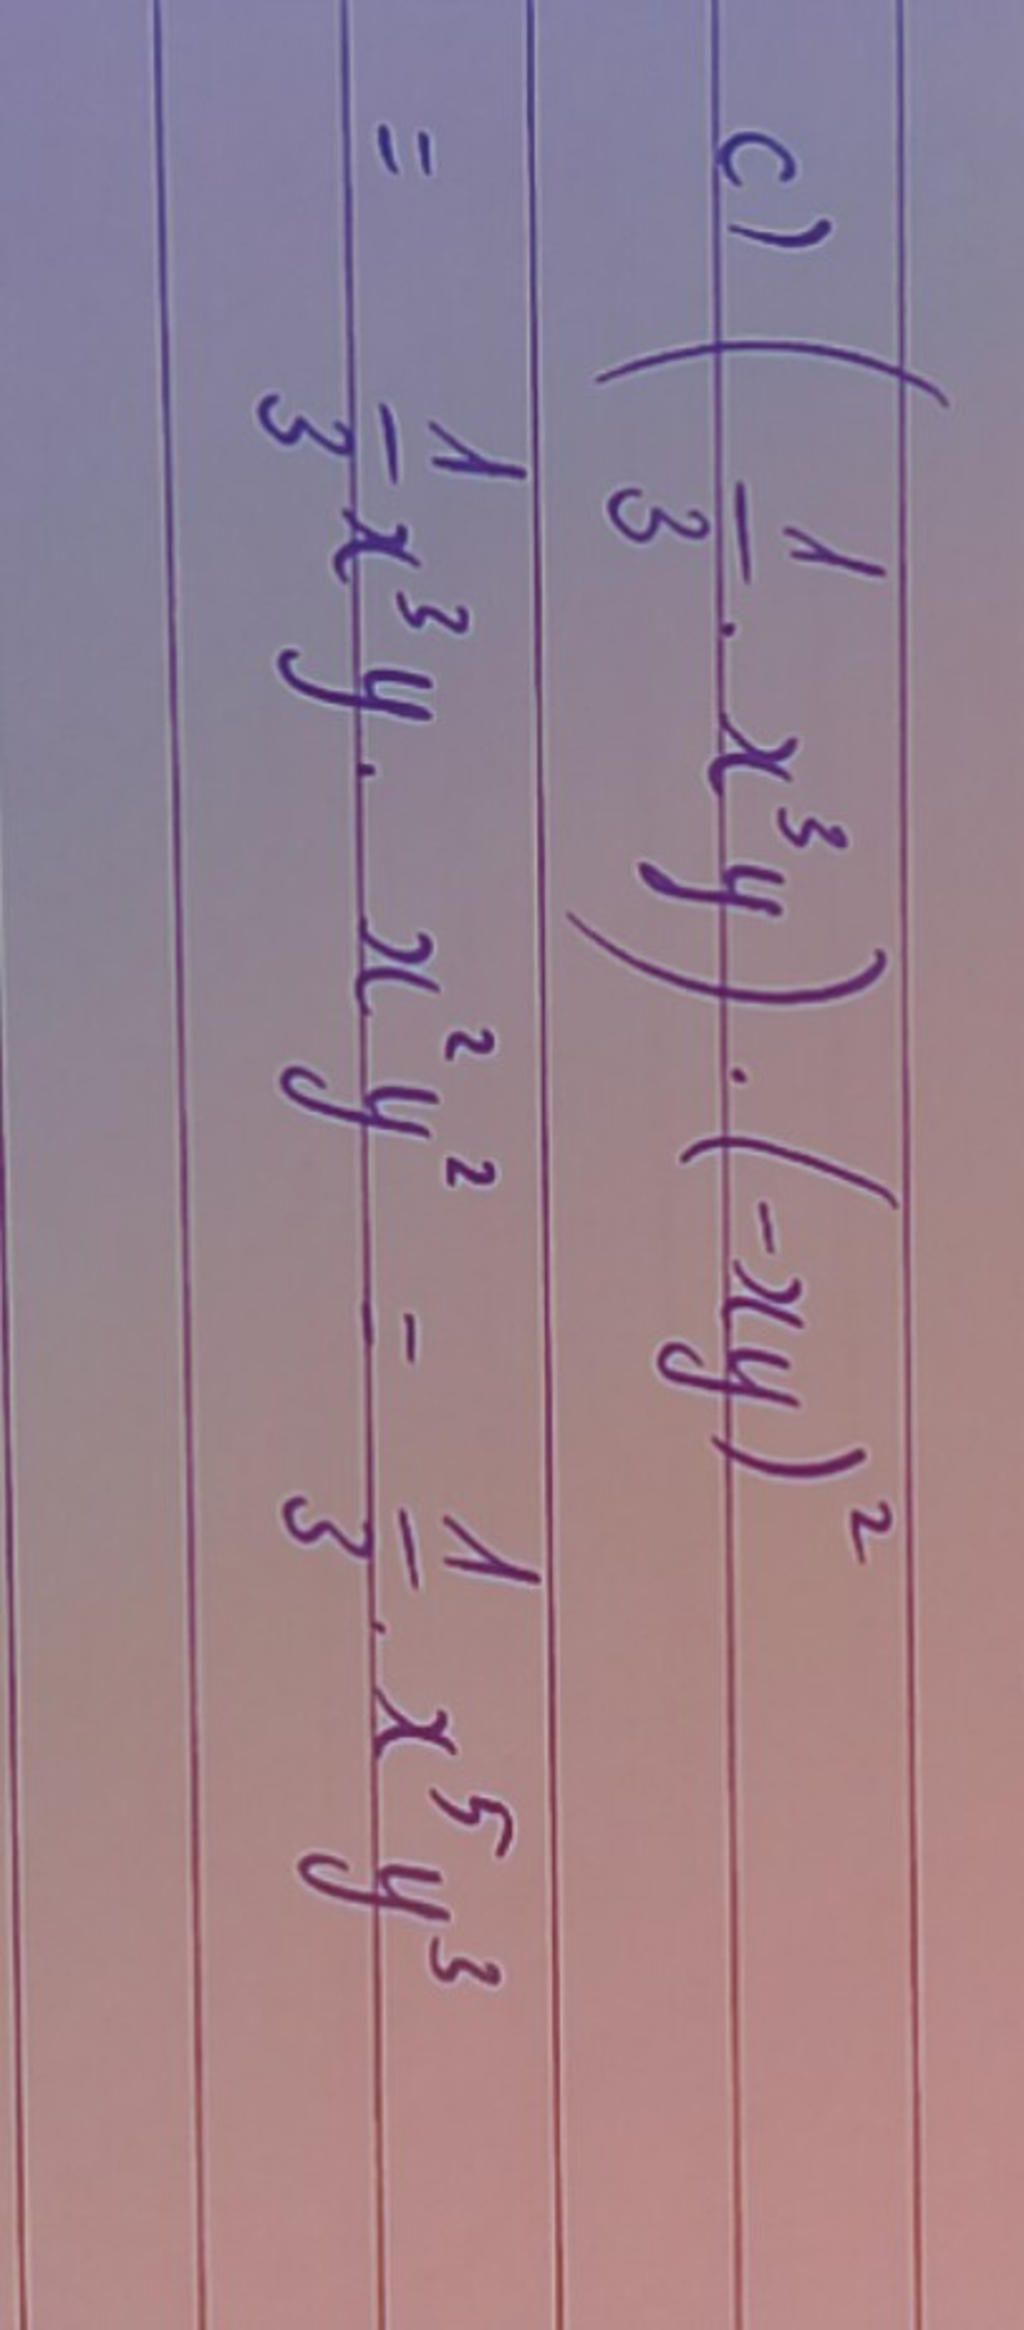 c) (1/3 . x³y) . (-xy)²
= 1/3 x³y . x²y² = 1/3 . x⁵y³